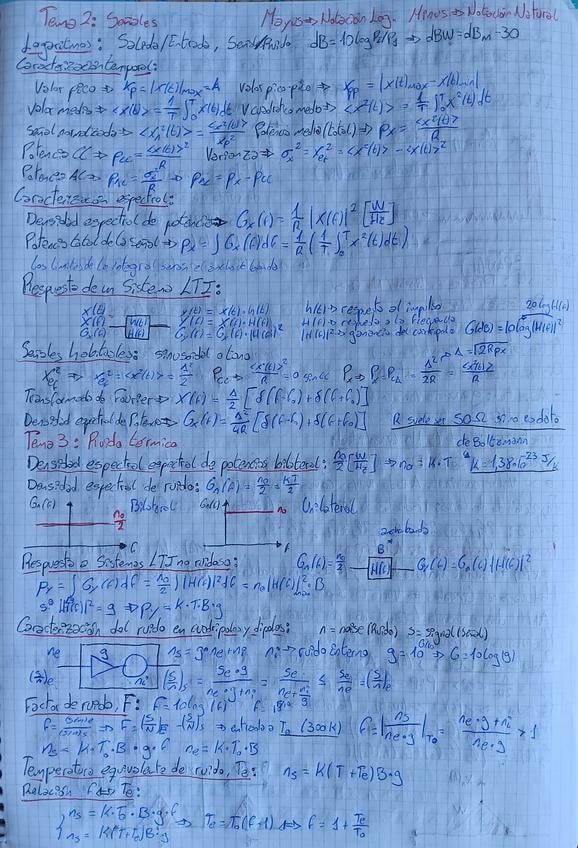 Tema 2: Señales Mayus ⇒ Notación Log. Minus ⇒ Notación Natural
Logaritmos: Salida/Entrada, Señal/Ruido dB = 10 log P2/P1 ⇒ dBW = dBm - 30
Caracterización temporal:
Valor pico ⇒ Xp = |X(t)|max = A Valor pico-pico ⇒ Xpp = |X(t)max - X(t)min|
Valor medio ⇒ <X(t)> = 1/T ∫₀ᵀ X(t)dt V cuadrático medio ⇒ <X²(t)> = 1/T ∫₀ᵀ X²(t)dt
Señal normalizada ⇒ <Xn²(t)> = <X²(t)>/Xp² Potencia media (total) ⇒ Px = <X²(t)>/R
Potencia CC ⇒ Pcc = <X(t)>²/R Varianza ⇒ σx² = Xef² = <X²(t)> - <X(t)>²
Potencia AC ⇒ Pac = σx²/R ⇒ Pac = Px - Pcc
Caracterización espectral:
Densidad espectral de potencia ⇒ Gx(f) = 1/R |X(f)|² [W/Hz]
Potencia total de la señal ⇒ Px = ∫ Gx(f)df = 1/R (1/T ∫₀ᵀ x²(t)dt)
Los límites de la integral serán el ancho de banda
Respuesta de un Sistema LTI:
20 log H(f)
X(t) y(t) = X(t) * h(t) h(t) ⇒ respuesta al impulso
X(f) h(t) Y(f) = X(f) · H(f) H(f) ⇒ respuesta a la frecuencia G(dB) = 10 log |H(f)|²
Gx(f) H(f) Gy(f) = Gx(f) · |H(f)|² |H(f)|² ⇒ ganancia del cuadripolo
Señales habituales: sinusoidal o tono A = √2RPx
Xef² ⇒ Xef² = <X²(t)> = A²/2 Pcc = <X(t)>²/R = 0 sin CC Px ⇒ Px = Pca = A²/2R = <X²(t)>/R
Transformada de Fourier ⇒ X(f) = A/2 [δ(f-f₀) + δ(f+f₀)]
Densidad espectral de Potencia ⇒ Gx(f) = A²/4R [δ(f-f₀) + δ(f+f₀)] R suele ser 50Ω si no es dato
Tema 3: Ruido térmico
de Boltzmann
Densidad espectral espectral de potencia bilateral: n₀/2 [W/Hz] ⇒ n₀ = K·T K = 1,38·10⁻²³ J/K
Densidad espectral de ruido: Gn(f) = n₀/2 = KT/2
Gn(f) Bilateral Gn(f) Unilateral
n₀/2 n₀
f f
ancho banda
B
Respuesta a Sistemas LTI no ruidoso: Gn(f) = n₀/2 H(f) Gy(f) = Gn(f)·|H(f)|²
Py = ∫ Gy(f)df = n₀/2 ∫|H(f)|²df = n₀|H(f)|²max · B
|H(f)|² = g ⇒ Py = K·T·B·g
Caracterización del ruido en cuadripolos y dipolos: n = noise (Ruido) S = Signal (Señal)
ne g ni ns = g·ne + ni ni ⇒ ruido interno g = 10^G/10 ⇒ G = 10 log(g)
(S/n)e (S/n)s = Se·g/(ne·g+ni) = Se/(ne+ni/g) ≤ Se/ne = (S/n)e
Factor de ruido, F: F = 10 log(f)
f = (S/n)e/(S/n)s ⇒ F = (S/N)e - (S/N)s ⇒ entrada a T₀ (300K) f = |ns/ne·g|T₀ = (ne·g+ni)/(ne·g) > 1
ns = K·T₀·B·g·f ne = K·T₀·B
Temperatura equivalente de ruido, Te: ns = K(T+Te)B·g
Relación f ⇔ Te:
ns = K·T₀·B·g·f
ns = K(T+Te)B·g ⇒ Te = T₀(f-1) ⇔ f = 1 + Te/T₀